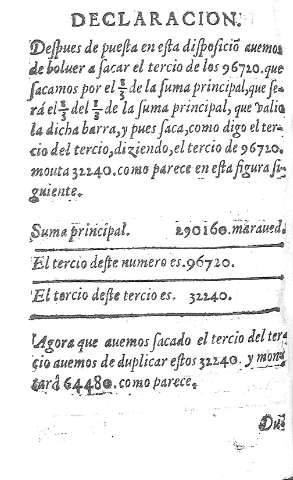 DECLARACION.
Despues de puesta en esta disposiciõ auemos
de boluer a sacar el tercio de los 96720. que
sacamos por el ⅓ de la suma principal, que se-
rá el ⅓ del ⅓ de la suma principal, que valio
la dicha barra, y pues saca, como digo el ter-
cio del tercio, diziendo, el tercio de 96720.
monta 32240. como parece en esta figura si-
guiente.
Suma principal. 290160. maraued.
El tercio deste numero es. 96720.
El tercio deste tercio es. 32240.
Agora que auemos sacado el tercio del ter
cio auemos de duplicar estos 32240. y mon
tará 64480. como parece.